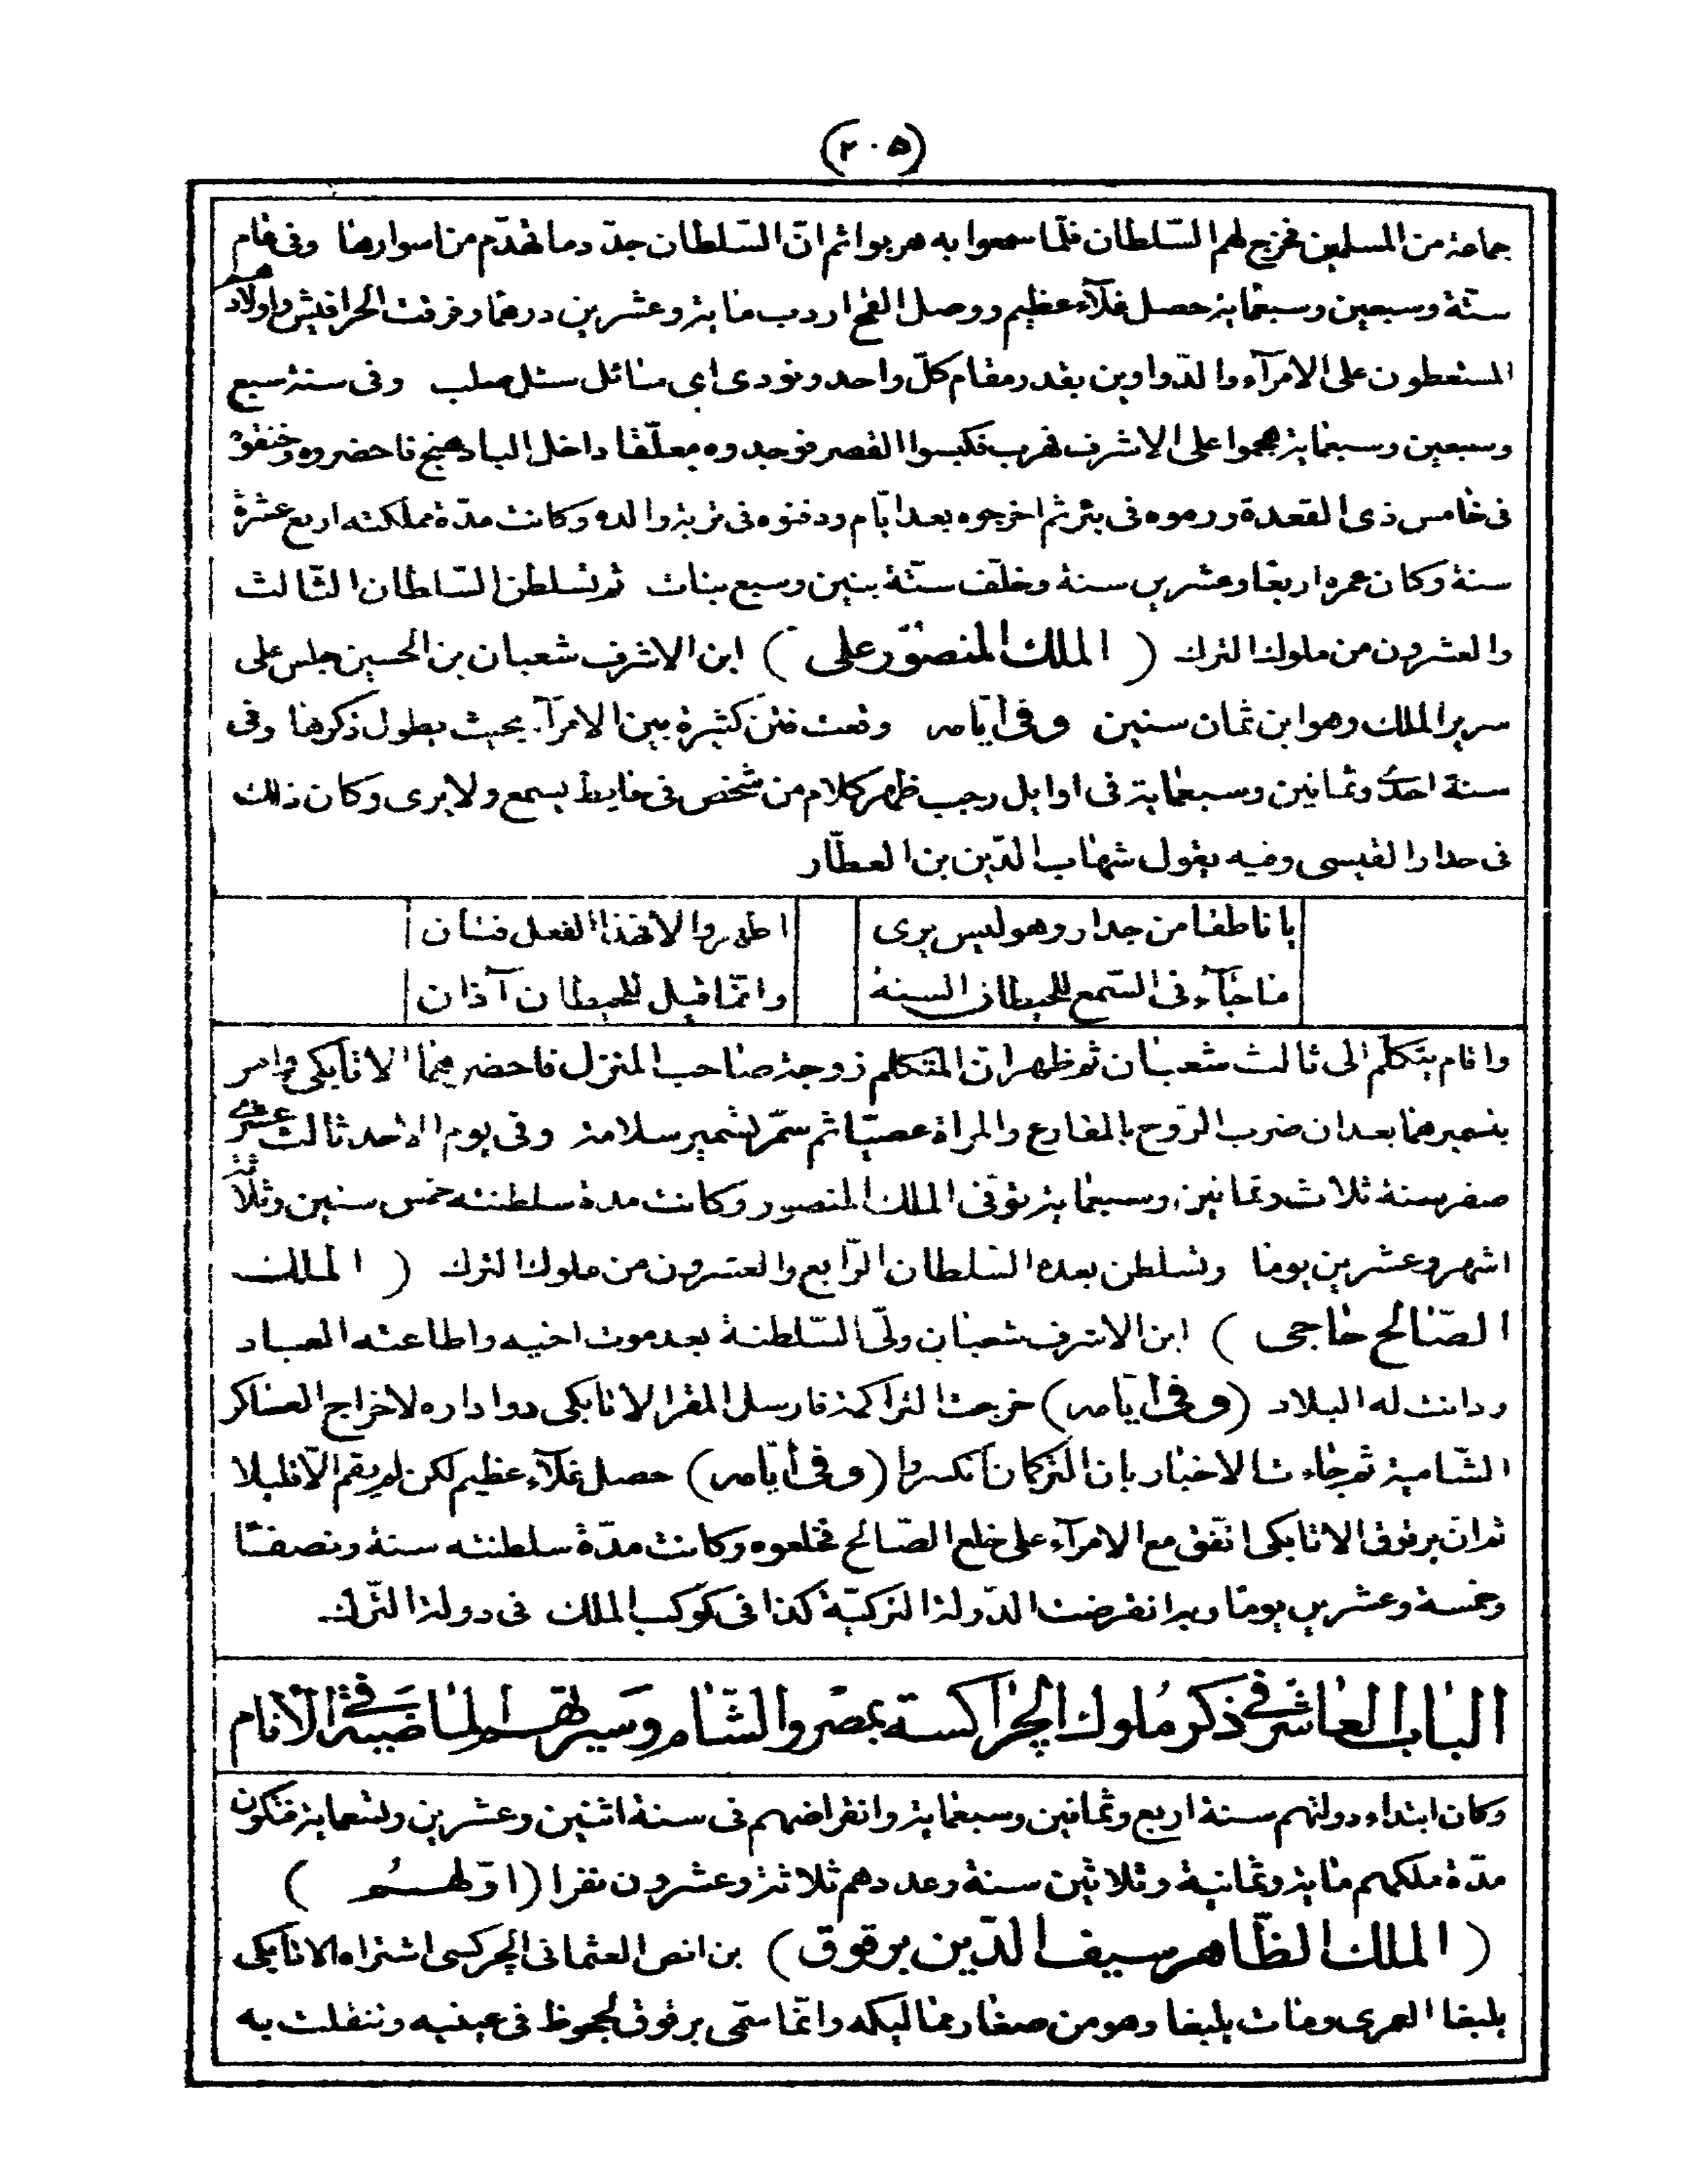 (٢٠٥)
جماعة من المسلمين فخرج لهم السّلطان فلّما سمعوا به هربوا ثم انّ السّلطان جدّد ما تهدّم من اسوارها وفى عام
ستّة وسبعين وسبعماية حصل غلآء عظيم ووصل القمح اردب ماية وعشرين درهما وفرقت الحرافيش واولادهم
المستعطون على الامرآء والدّواوين بقدر مقام كلّ واحد ونودى اى سائل سئل صلب وفى سنة سبع
وسبعين وسبعماية هجموا على الاشرف فهرب فكبسوا القصر فوجدوه معلّقا داخل البادهنج فاحضروه وخنقوه
فى خامس ذى القعدة ورموه فى بئر ثم اخرجوه بعد ايّام ودفنوه فى تربة والده وكانت مدّة مملكته اربع عشرة
سنة وكان عمره اربعا وعشرين سنة وخلّف ستّة بنين وسبع بنات ثم تسلطن السّلطان الثّالث
والعشرون من ملوك الترك ( الملك المنصور على ) ابن الاشرف شعبان بن الحسين جلس على
سرير الملك وهو ابن ثمان سنين وفى ايّامه وقعت فتن كثيرة بين الامرآء بحيث يطول ذكرها وفى
سنة احدى وثمانين وسبعماية فى اوايل رجب ظهر كلام من شخص فى حايط يسمع ولا يرى وكان ذلك
فى جدار القيسى وفيه يقول شهاب الدّين بن العطّار
يا ناطقا من جدار وهو ليس يرى اظهر والا فهذا الفعل فتان
ما جآء فى السّمع للحيطان السنة وانّما قيل للحيطان آذان
واقام يتكلّم الى ثالث شعبان ثم ظهر انّ المتكلم زوجة صاحب المنزل فاحضر هما الاتابكى وامر
بتسمير هما بعد ان ضرب الزوج بالمقارع والمراة عصيّا ثم سمّر تسمير سلامة وفى يوم الاحد ثالث عشرى
صفر سنة ثلاث وثمانين وسبعماية توفى الملك المنصور وكانت مدة سلطنته خمس سنين وثلاثة
اشهر وعشرين يوما وتسلطن بعده السّلطان الرّابع والعشرون من ملوك الترك ( الملك
الصّالح حاجى ) ابن الاشرف شعبان ولّى السّلطنة بعد موت اخيه واطاعته العباد
ودانت له البلاد (وفى ايّامه) خرجت التراكمة فارسل المقر الاتابكى دواداره لاخراج العساكر
الشّامية ثم جاءت الاخبار بان التركمان انكسروا (وفى ايّامه) حصل غلآء عظيم لكن لم يقم الّا قليلا
ثم انّ برقوق الاتابكى اتّفق مع الامرآء على خلع الصّالح فخلعوه وكانت مدّة سلطنته سنة ونصفا
وخمسة وعشرين يوما وبه انقرضت الدّولة التركيّة كذا فى كوكب الملك فى دولة التّرك
الباب العاشر فى ذكر ملوك الچراكسة بمصر والشّام وسيرتهم الماضية فى الانام
وكان ابتداء دولتهم سنة اربع وثمانين وسبعماية وانقراضهم فى سنة اثنين وعشرين وتسعماية فتكون
مدّة ملكهم ماية وثمانية وثلاثين سنة وعددهم ثلاثة وعشرون نفرا (اوّلهم )
( الملك الظّاهر سيف الدّين برقوق ) بن انص العثمانى الچركسى اشتراه الاتابكى
يلبغا العمرى ومات يلبغا وهو من صغار مماليكه وانّما سمّى برقوق لجحوظ فى عينيه وتنقلت به